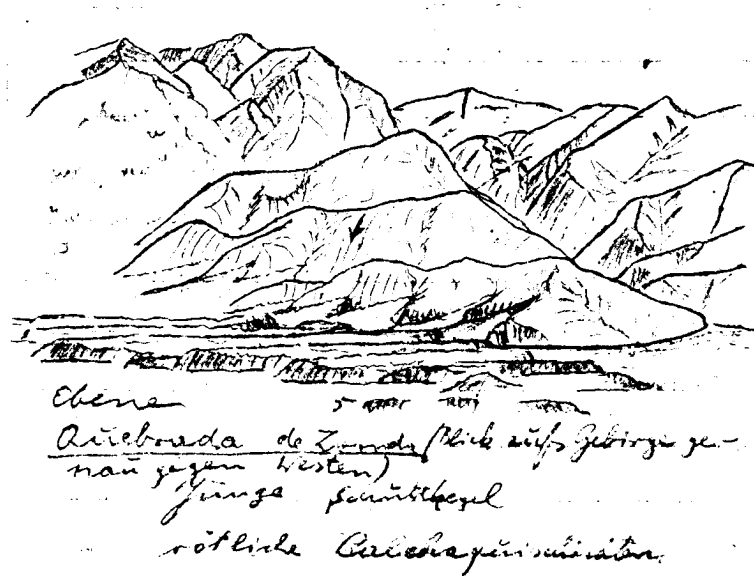 Ebene
Quebrada de Zonda (Blick aufs Gebirge ge-
nau gegen Westen)
Junge Schuttkegel
rötliche Calchaquischichten